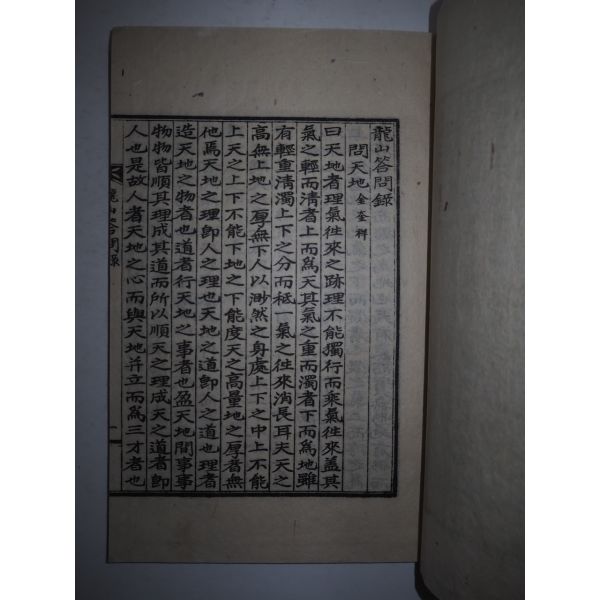 龍山答問錄
問天地 金奎祥
曰天地者理氣徃來之跡理不能獨行而乘氣徃來盖其
氣之輕而清者上而爲天其氣之重而濁者下而爲地雖
有輕重清濁上下之分而秪一氣之徃來消長耳夫天之
高無上地之厚無下人以渺然之身處上下之中上不能
上天之上下不能下地之下能度天之高量地之厚者無
他焉天地之理卽人之理也天地之道卽人之道也理者
造天地之物者也道者行天地之事者也盈天地間事事
物物皆順其理成其道而所以順天之理成天之道者卽
人也是故人者天地之心而與天地并立而爲三才者也
龍山答問錄
一